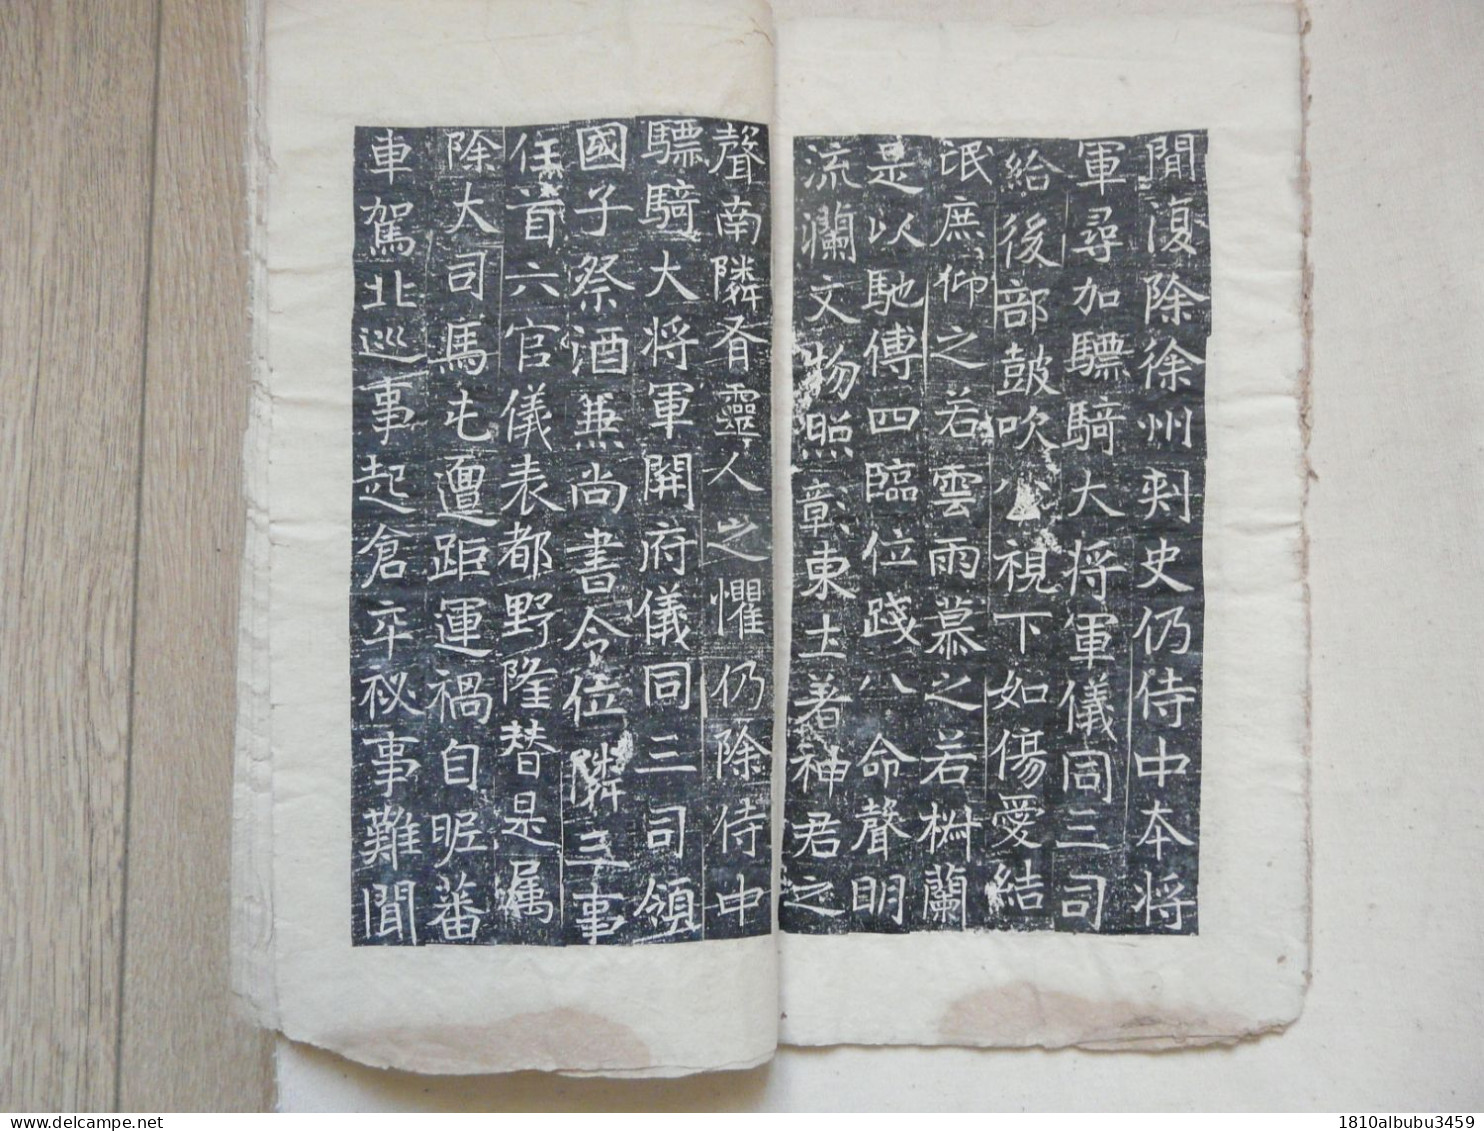 閒復除徐州刺史仍侍中本将
軍尋加驃騎大将軍儀同三司
給後部鼓吹公視下如傷愛結
氓庶仰之若雲雨慕之若椒蘭
是以馳傳四臨位踐八命聲明
流瀾文物照彰東土著神君之
聲南隣脊靈人之懼仍除侍中
驃騎大将軍開府儀同三司領
國子祭酒兼尚書令位隣三事
任首六官儀表都野隆替是属
除大司馬屯邅距運禍自昵蕃
車駕北巡事起倉卒祕事難聞
delcampe.net
1810albubu3459